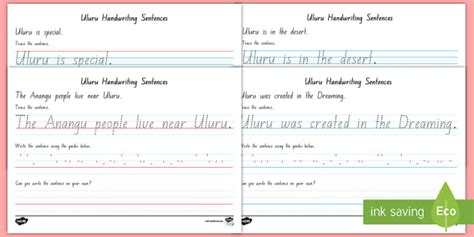 Uluru Handwriting Sentences
Uluru is special.
Trace the sentence.
Uluru is special.
Uluru Handwriting Sentences
Uluru is in the desert.
Trace the sentence.
Uluru is in the desert.
Uluru Handwriting Sentences
The Anangu people live near Uluru.
Trace the sentence.
The Anangu people live near Uluru.
Write the sentence using the guides below.
Can you write the sentence on your own?
Uluru Handwriting Sentences
Uluru was created in the Dreaming.
Trace the sentence.
Uluru was created in the Dreaming.
Write the sentence using the guides below.
Can you write the sentence on your own?
ink saving
Eco